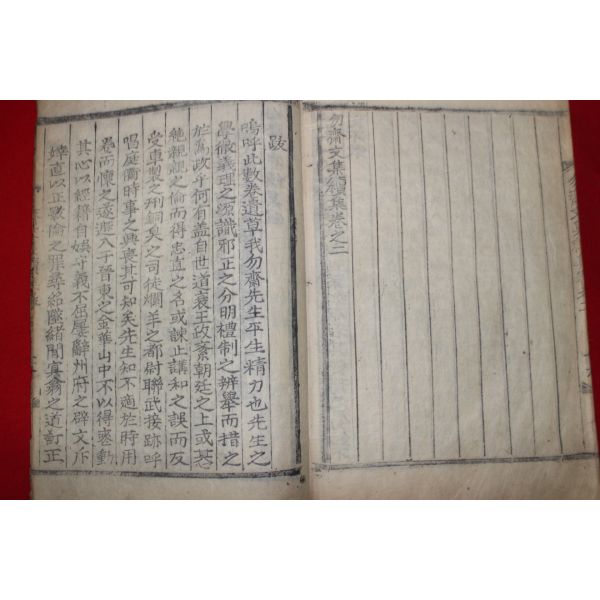 勿齋文集續集卷之二
跋
嗚呼此數卷遺草我勿齋先生平生精力也先生之
學徹義理之源識邪正之分明禮制之辨擧而措之
於爲政乎何有盖自世道衰王政紊朝廷之上或恣
絶親親之倫而得忠直之名或諫止講和之誤而反
受重製之刑銅臭之司徒爛羊之都尉聯武接跡呼
唱庭衢時事之興喪其可知矣先生知不適於時用
卷而懷之遂遯入于晉東之金華山中不以得喪動
其心以經籍自娛守義不屈屢辭州府之辟文斥
悻直以正斁倫之罪尋紹墜緖闡寘翁之道訂正